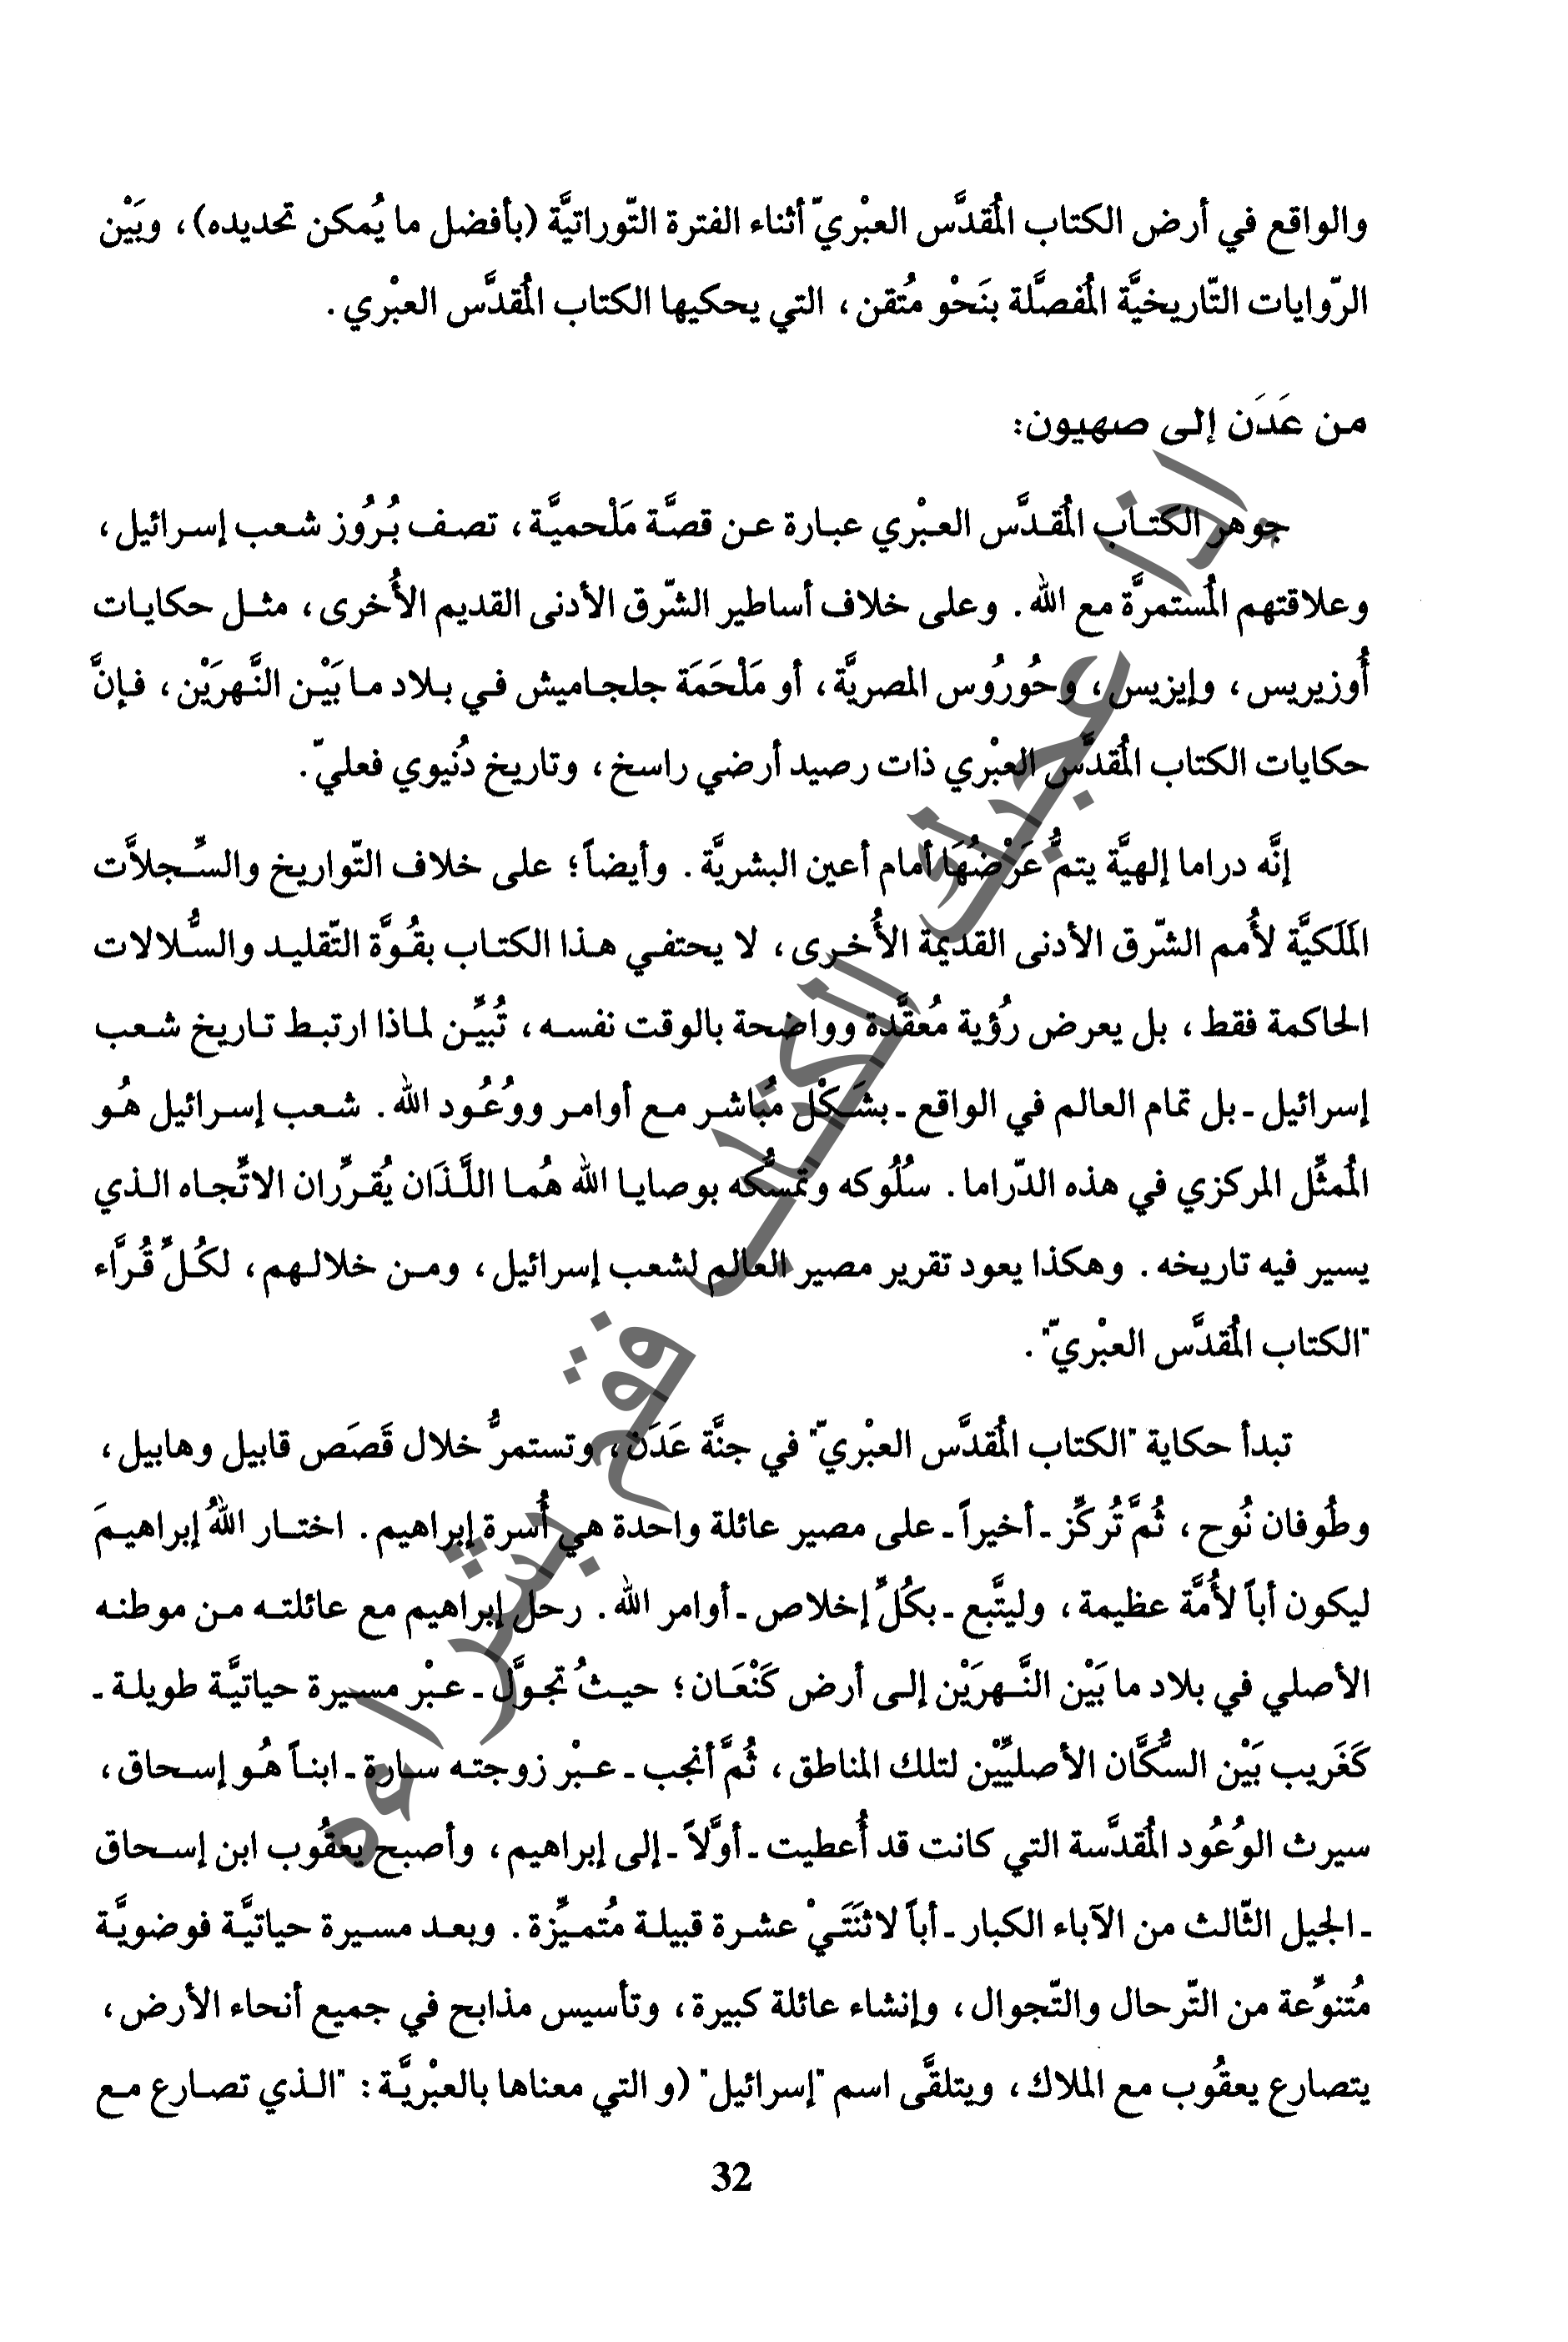 والواقع في أرض الكتاب المُقدَّس العبْريّ أثناء الفترة التّوراتيَّة (بأفضل ما يُمكن تحديده)، وبَيْن
الرّوايات التّاريخيَّة المُفصَّلة بنَحْو مُتقن، التي يحكيها الكتاب المُقدَّس العبْري.
من عَدَن إلى صهيون:
جوهر الكتاب المُقدَّس العبْري عبارة عن قصَّة مَلْحميَّة، تصف بُرُوز شعب إسرائيل،
وعلاقتهم المُستمرَّة مع الله. وعلى خلاف أساطير الشّرق الأدنى القديم الأُخرى، مثل حكايات
أُوزيريس، وإيزيس، وحُورُوس المصريَّة، أو مَلْحَمَة جلجاميش في بلاد ما بَيْن النَّهرَيْن، فإنَّ
حكايات الكتاب المُقدَّس العبْري ذات رصيد أرضي راسخ، وتاريخ دُنيوي فعليّ.
إنَّه دراما إلهيَّة يتمُّ عَرْضُهَا أمام أعين البشريَّة. وأيضاً؛ على خلاف التّواريخ والسِّجلاَّت
المَلَكيَّة لأُمم الشّرق الأدنى القديمة الأُخرى، لا يحتفي هذا الكتاب بقُوَّة التّقليد والسُّلالات
الحاكمة فقط، بل يعرض رُؤية مُعقَّدة وواضحة بالوقت نفسه، تُبيِّن لماذا ارتبط تاريخ شعب
إسرائيل ـ بل تمام العالم في الواقع ـ بشَكْل مُباشر مع أوامر ووُعُود الله. شعب إسرائيل هُو
المُمثِّل المركزي في هذه الدّراما. سُلُوكه وتمسُّكه بوصايا الله هُما اللَّذَان يُقرِّران الاتِّجاه الذي
يسير فيه تاريخه. وهكذا يعود تقرير مصير العالم لشعب إسرائيل، ومن خلالهم، لكُلِّ قُرَّاء
"الكتاب المُقدَّس العبْريّ".
تبدأ حكاية "الكتاب المُقدَّس العبْريّ" في جنَّة عَدَن، وتستمرُّ خلال قَصَص قابيل وهابيل،
وطُوفان نُوح، ثُمَّ تُركِّز ـ أخيراً ـ على مصير عائلة واحدة هي أُسرة إبراهيم. اختار اللهُ إبراهيمَ
ليكون أباً لأُمَّة عظيمة، وليتَّبع ـ بكُلِّ إخلاص ـ أوامر الله. رحل إبراهيم مع عائلته من موطنه
الأصلي في بلاد ما بَيْن النَّهرَيْن إلى أرض كَنْعَان؛ حيثُ تجوَّل ـ عبْر مسيرة حياتيَّة طويلة ـ
كَغَريب بَيْن السُّكَّان الأصليِّيْن لتلك المناطق، ثُمَّ أنجب ـ عبْر زوجته سارة ـ ابناً هُو إسحاق،
سيرث الوُعُود المُقدَّسة التي كانت قد أُعطيت ـ أوَّلاً ـ إلى إبراهيم، وأصبح يعقُوب ابن إسحاق
ـ الجيل الثّالث من الآباء الكبار ـ أباً لاثنَتَيْ عشرة قبيلة مُتميِّزة. وبعد مسيرة حياتيَّة فوضويَّة
مُتنوِّعة من التّرحال والتّجوال، وإنشاء عائلة كبيرة، وتأسيس مذابح في جميع أنحاء الأرض،
يتصارع يعقُوب مع الملاك، ويتلقَّى اسم "إسرائيل" (و التي معناها بالعبْريَّة: "الذي تصارع مع
32
إذا عجبك الكتاب فقم بشراءه